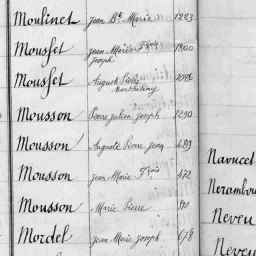 Moulinet Jean Bte Marie 1223
Mousset Jean Marie Fçois 1800
Joseph
Mousset Auguste
Mousson Pierre Julien Joseph 1290
Mousson Auguste Pierre Jean 489
Mousson Jean Marie Fçois 472
Mousson Marie Pierre
Mordel Jean Marie Joseph 678
Navucet
Nerambou
Neveu
Neveu